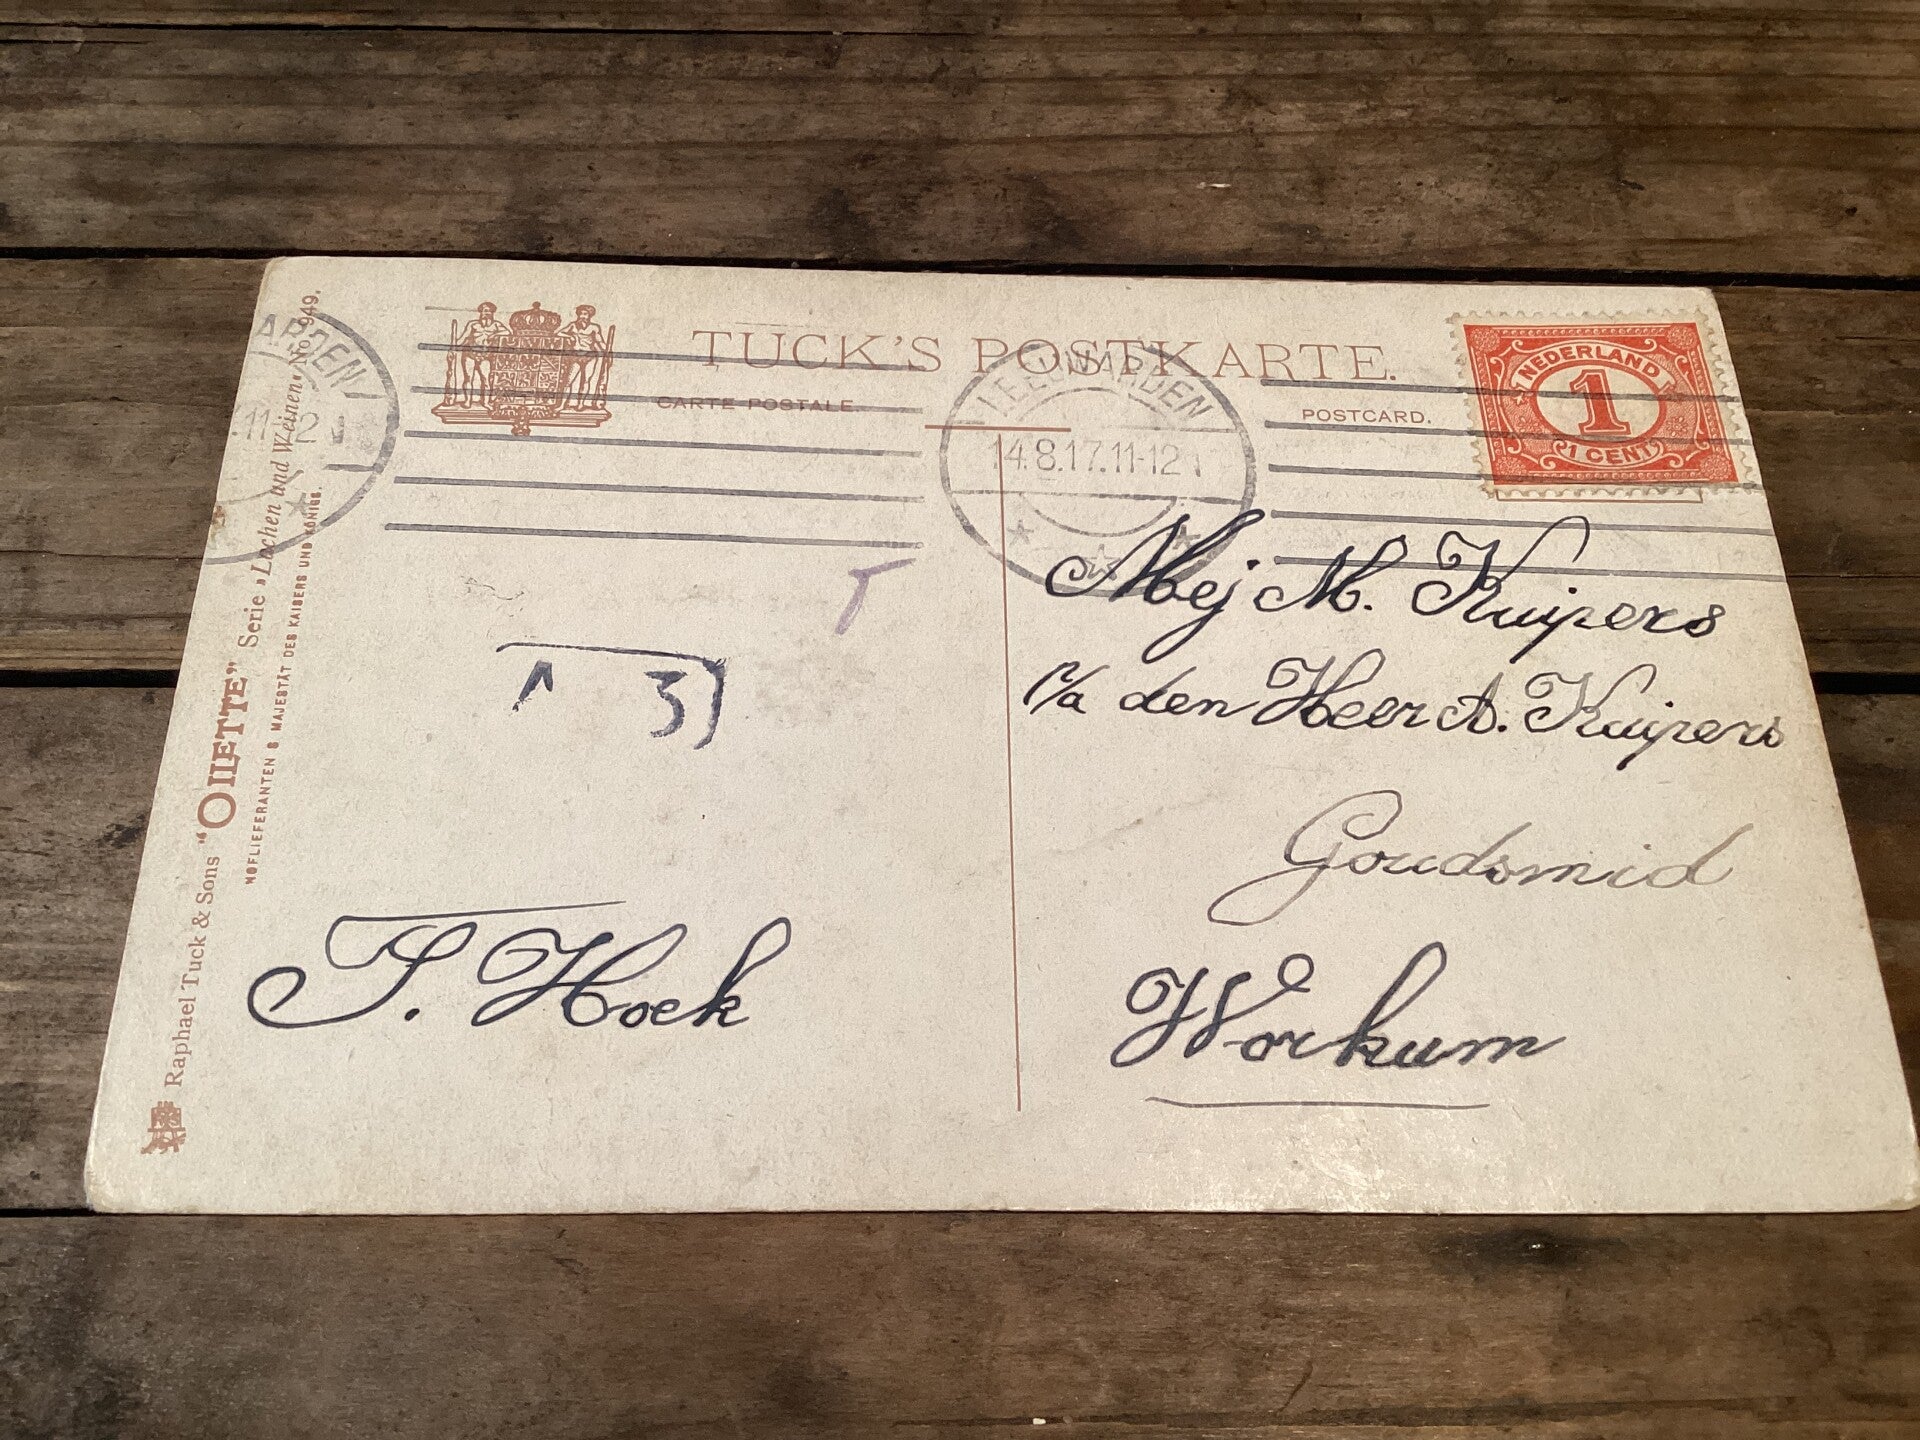 TUCK'S POSTKARTE.
CARTE POSTALE.
POSTCARD.
NEDERLAND
1
1 CENT
LEEUWARDEN
14.8.17.11-12
ARDEN
11-12
Raphael Tuck & Sons "OILETTE" Serie »Lachen und Weinen« No 949.
HOFLIEFERANTEN S MAJESTÄT DES KAISERS UND KÖNIGS.
T
Mej M. Kuipers
p/a den Heer A. Kuipers
Goudsmid
Workum
S. Hoek